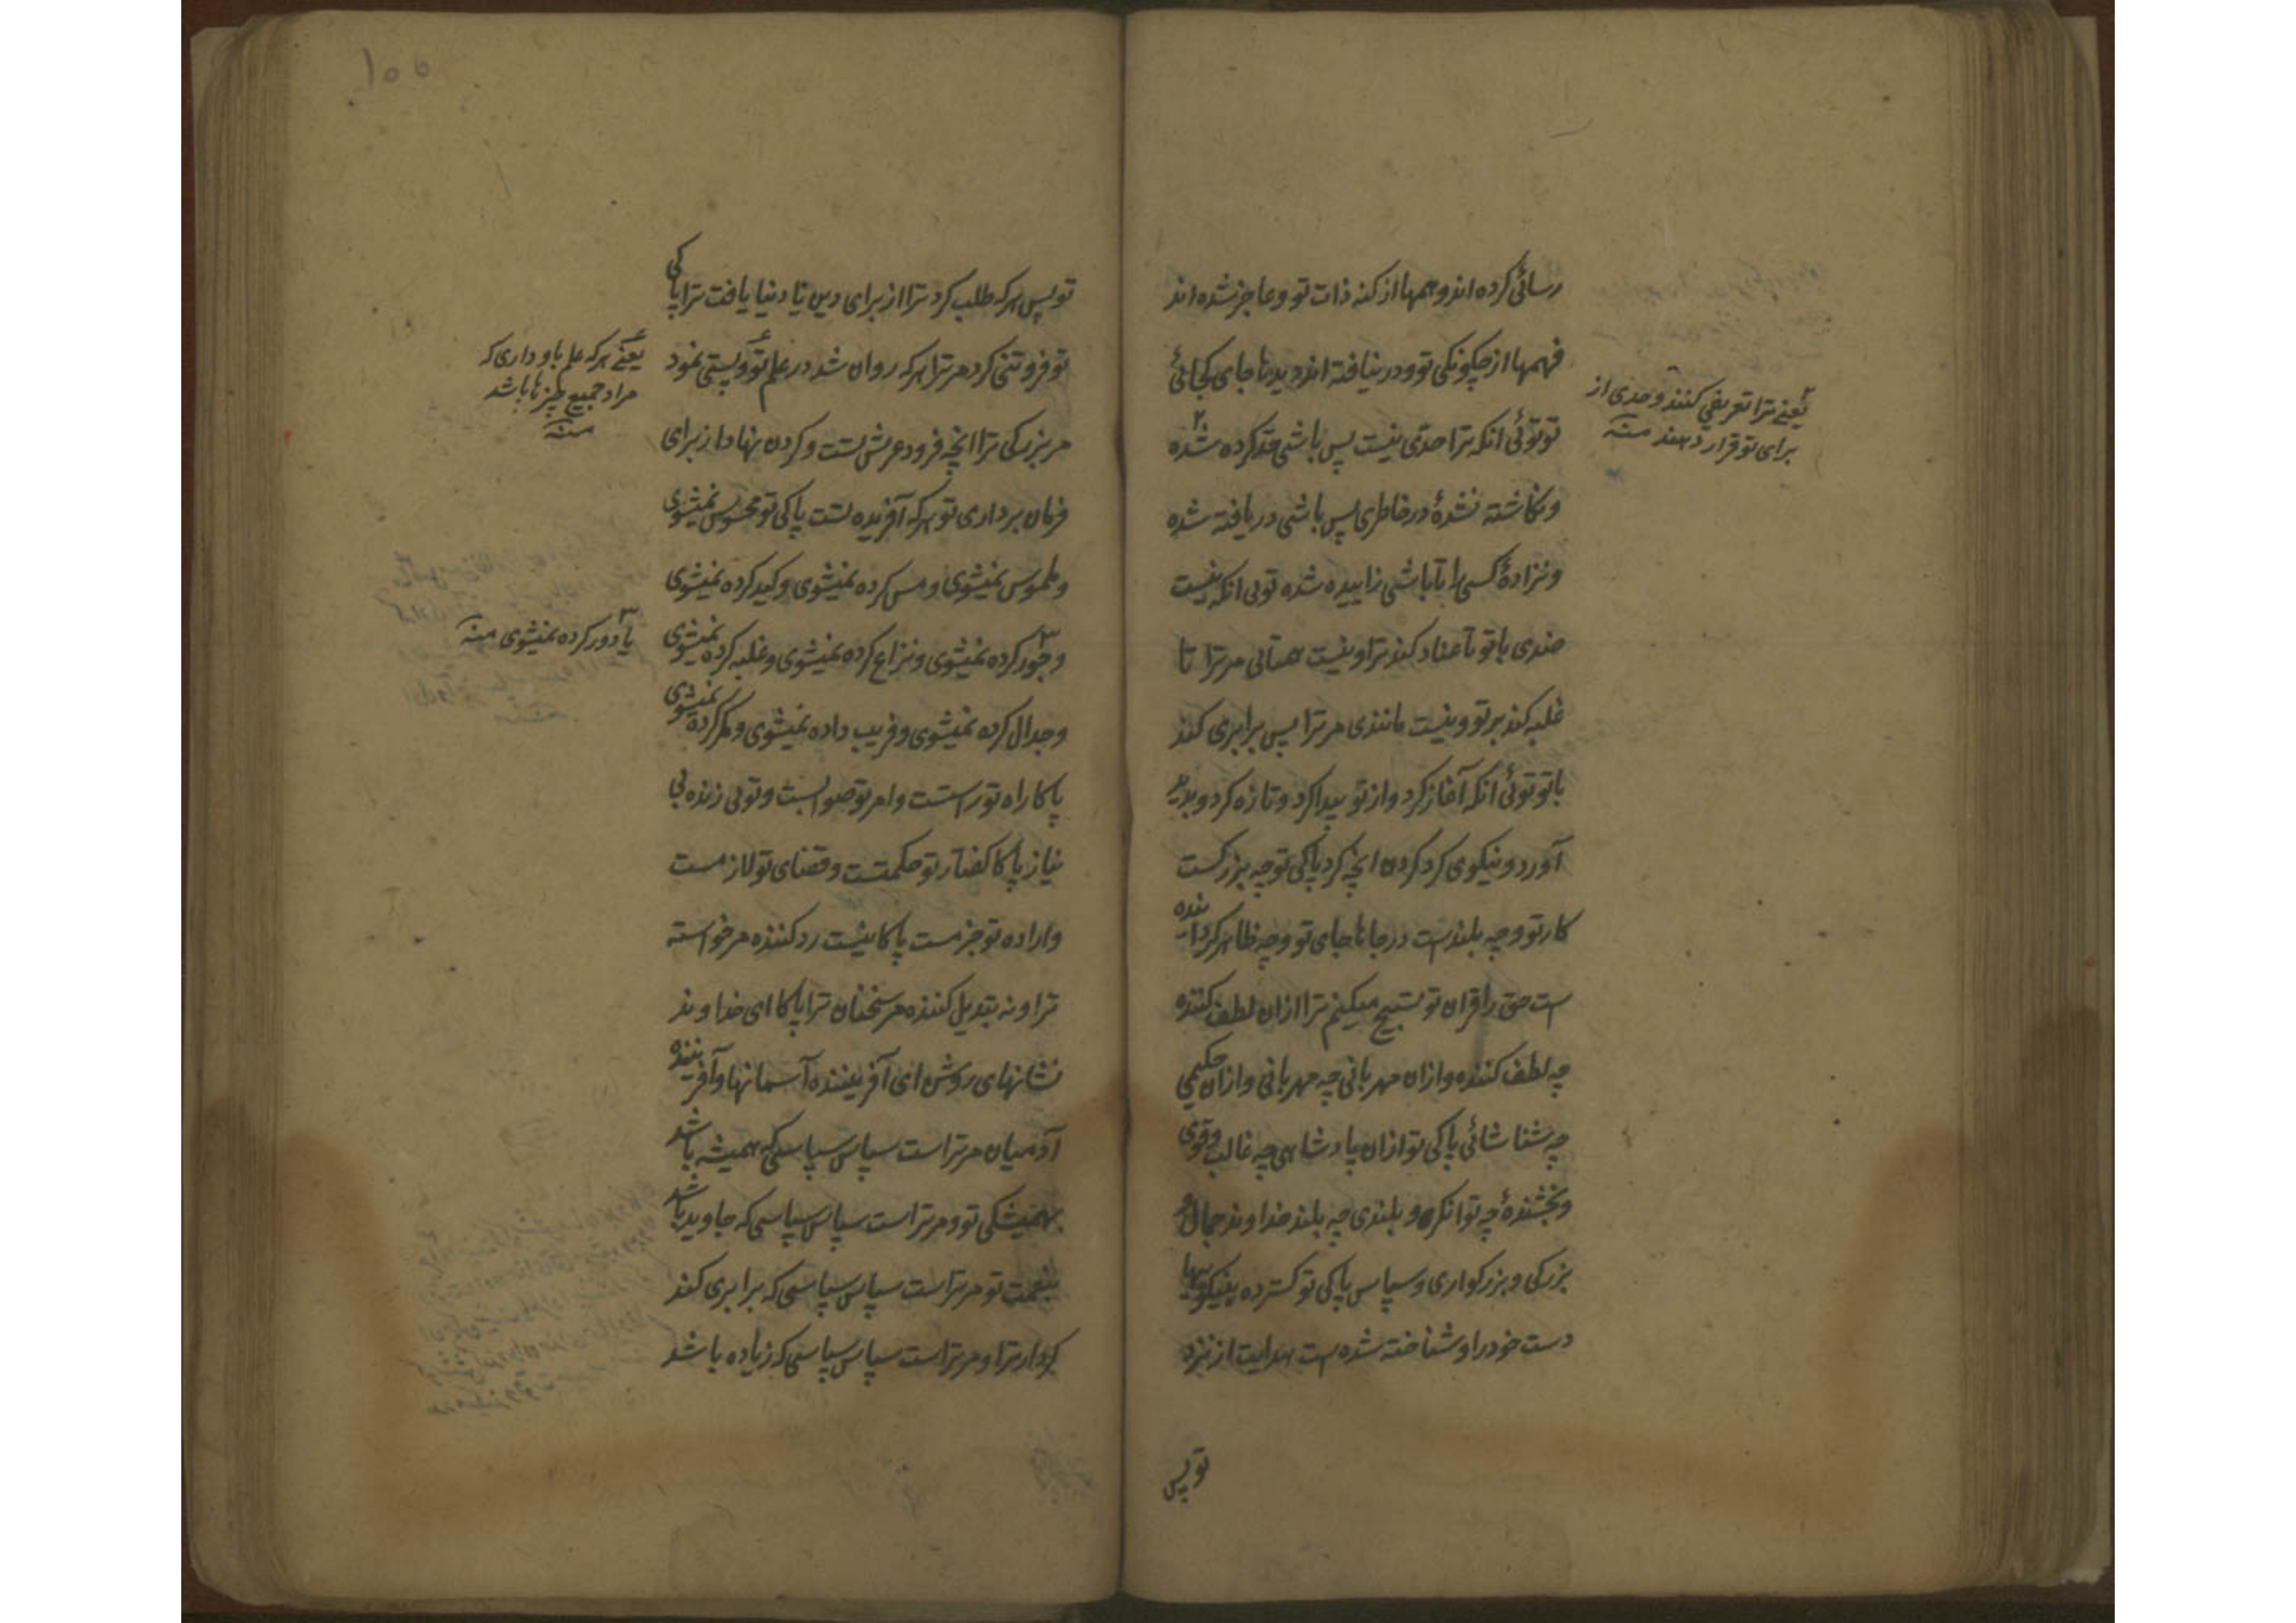 رسائی کرده اند و همها از کنه ذات تو و عاجز شده اند
فهمها از چکونکی تو و در نیافته اند دیدها جای کجائی
تو توئی انکه ترا حدی نیست پس باشی حد کرده شده
و نکاشته نشدهٔ در خاطری پس باشی دریافته شده
و نزادهٔ کسی را تا باشی زاییده شده توی انکه نیست
ضدی با تو تا عناد کند ترا و نیست همتائی مر ترا تا
غلبه کند بر تو و نیست مانندی مر ترا پس برابری کند
با تو توئی انکه آغاز کرد و از نو پیدا کرد و تازه کرد و پدید
آورد و نیکوی کرد کردن انچه کرد پاکی تو چه بزرکست
کار تو و چه بلندست در جاها جای تو و چه ظاهر کرداننده
است حق را فرقان تو تسبیح میکنم ترا ازان لطف کننده
چه لطف کننده و ازان مهربانی چه مهربانی و ازان حکیمی
چه شناسائی پاکی تو ازان پادشاهی چه غالب و قوی
و بخشندهٔ چه توانکر و بلندی چه بلند خداوند جمال و
بزرکی و بزرکواری و سپاس پاکی تو کسترده بنیکوییها
دست خود را و شناخته شده است هدایت از نزد
تو پس
یعنے ترا تعریفی کنند و حدی از
برای تو قرار دهند منه
۱۰۵
تو پس هر که طلب کرد ترا از برای دین یا دنیا یافت ترا پاکی
تو فروتنی کرد مر ترا هر که روان شد در علم تو و پستی نمود
مر بزرکی ترا انچه فرود عرش تست و کردن نهاد از برای
فرمان برداری تو هر که آفریده تست پاکی تو محسوس نمیشوی
و ملموس نمیشوی و مس کرده نمیشوی و کید کرده نمیشوی
و جور کرده نمیشوی و نزاع کرده نمیشوی و غلبه کرده نمیشوی
و جدال کرده نمیشوی و فریب داده نمیشوی و مکر کرده نمیشوی
پاکا راه تو راستست و امر تو صوابست و توئی زنده بی
نیاز پاکا کفتار تو حکمتست و قضای تو لازمست
و اراده تو جزمست پاکا نیست رد کننده مر خواسته
ترا و نه تبدیل کننده مر سخنان ترا پاکا ای خداوند
نشانهای روشن ای آفریننده آسمانها و آفریننده
آدمیان مر تراست سپاس سپاسی که همیشه باشد
بهمیشکی تو و مر تراست سپاس سپاسی که جاوید باشد
بنعمت تو مر تراست سپاس سپاسی که برابری کند
کردار ترا و مر تراست سپاس سپاسی که زیاده باشد
یعنے هر که علم باو داری که
مراد جمیع چیزها باشد
منه
یا دور کرده نمیشوی منه